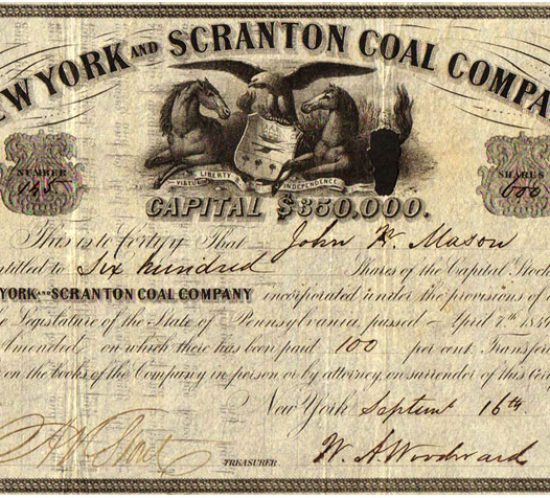 EW YORK AND SCRANTON COAL COMPA
NUMBER
145
SHARES
600
VIRTUE LIBERTY INDEPENDENCE
CAPITAL $350.000.
This is to Certify That John W. Mason
ntitled to Six hundred Shares of the Capital Stock
YORK AND SCRANTON COAL COMPANY incorporated under the provisions of
e Legislature of the State of Pennsylvania, passed April 7th 184
Amended, on which there has been paid 100 per cent. Transfer
on the books of the Company in person or by attorney, on surrender of this Cer
New York 16th
TREASURER. W. A. Woodward